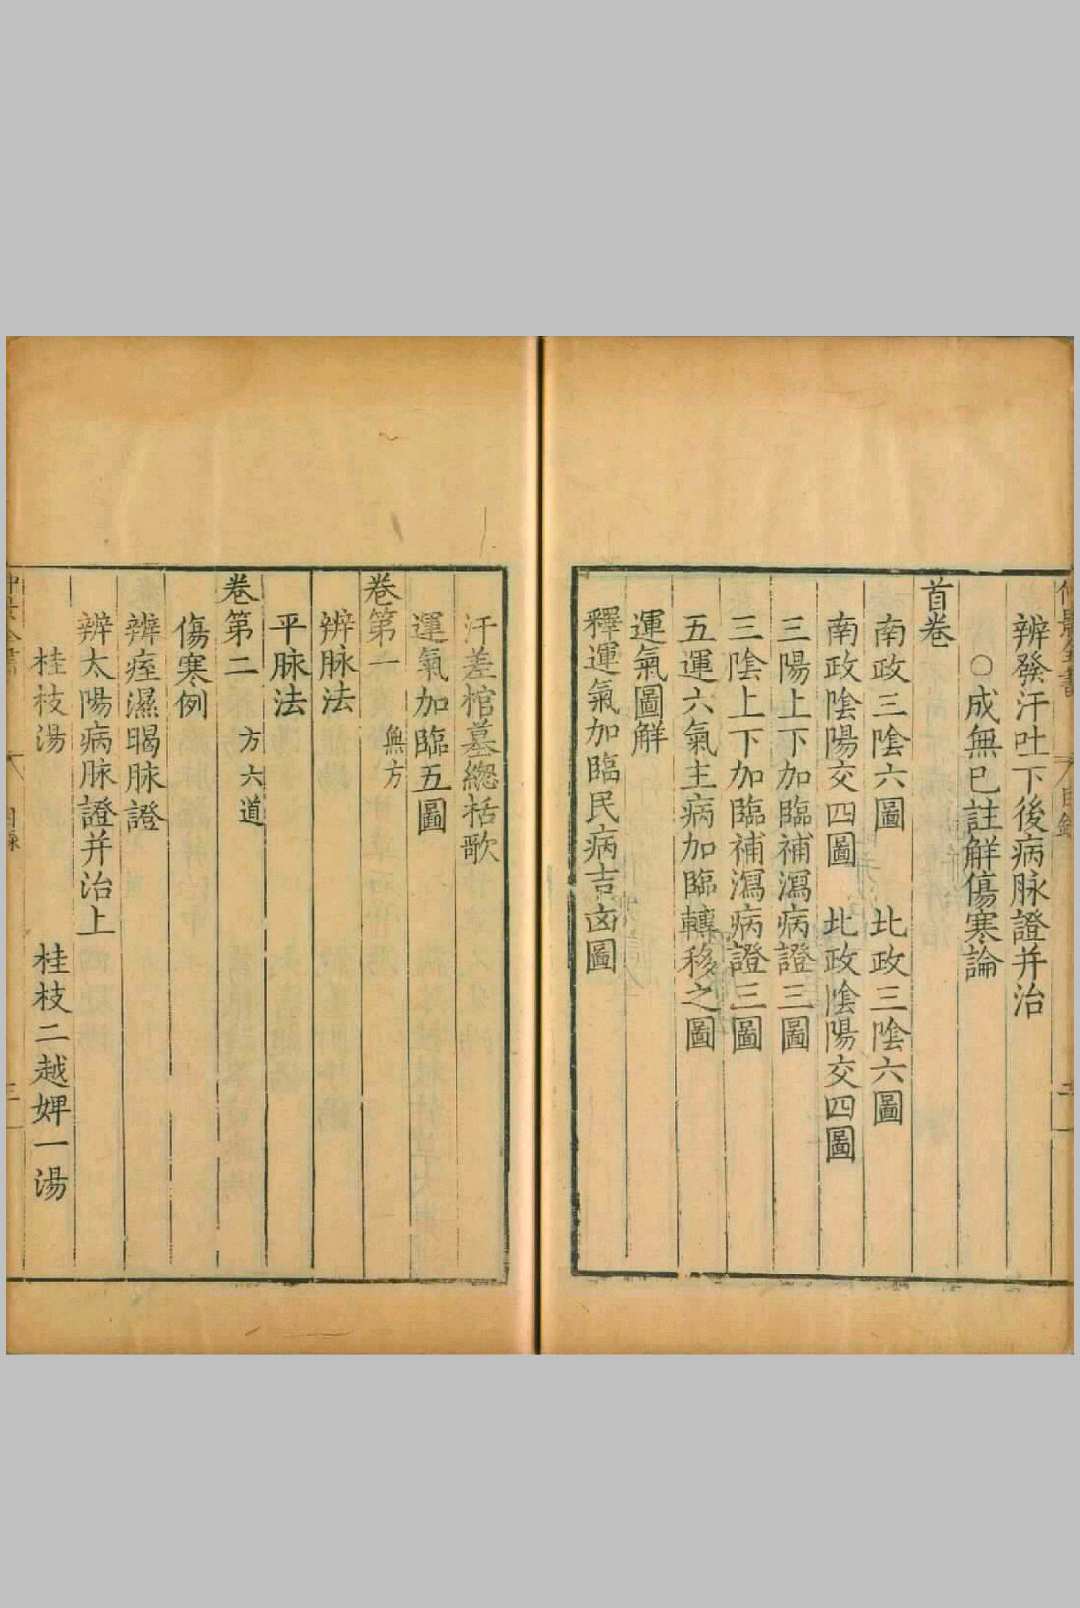 仲景全書 目錄
辨發汗吐下後病脉證并治
○成無已註解傷寒論
首卷
南政三陰六圖 北政三陰六圖
南政陰陽交四圖 北政陰陽交四圖
三陽上下加臨補瀉病證三圖
三陰上下加臨補瀉病證三圖
五運六氣主病加臨轉移之圖
運氣圖解
釋運氣加臨民病吉凶圖
汗差棺墓緫括歌
運氣加臨五圖
卷第一 無方
辨脉法
平脉法
卷第二 方六道
傷寒例
辨痓濕暍脉證
辨太陽病脉證并治上
桂枝湯 桂枝二越婢一湯
三